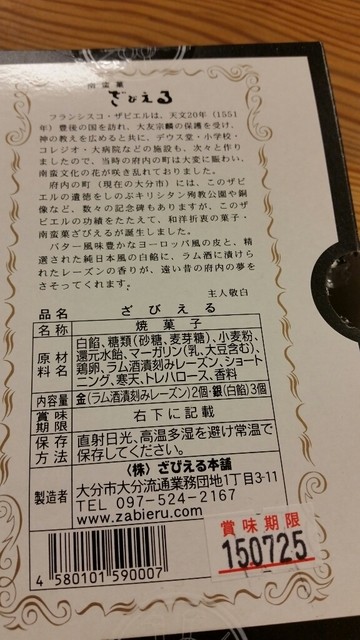 南蛮菓
ざびえる
フランシスコ・ザビエルは、天文20年（1551
年）豊後の国を訪れ、大友宗麟の保護を受け、
神の教えを広めると共に、デウス堂・小学校・
コレジオ・大病院などの施設も、次々と作り
ましたので、当時の府内の町は大変に賑わい、
南蛮文化の花が咲き乱れておりました。
府内の町（現在の大分市）には、このザビ
エルの遺徳をしのぶキリシタン殉教公園や銅
像など、数々の記念碑もありますが、このザ
ビエルの功績をたたえて、和洋折衷の菓子・
南蛮菓ざびえるが誕生しました。
バター風味豊かなヨーロッパ風の皮と、精
選された純日本風の白餡に、ラム酒に漬けら
れたレーズンの香りが、遠い昔の府内の夢を
さそってくれます。
主人敬白
品名 ざびえる
名称 焼菓子
原材料名 白餡、糖類（砂糖、麦芽糖）、小麦粉、
還元水飴、マーガリン（乳、大豆含む）、
鶏卵、ラム酒漬刻みレーズン、ショート
ニング、寒天、トレハロース、香料
内容量 金（ラム酒漬刻みレーズン）2個・銀（白餡）3個
賞味期限 右下に記載
保存方法 直射日光、高温多湿を避け常温で
保存してください。
製造者 〈株〉ざびえる本舗
大分市大分流通業務団地1丁目3-11
TEL 097-524-2167
www.zabieru.com
賞味期限
150725
4 580101 590007